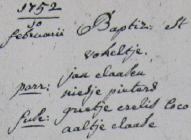 1752
10
februarii Baptiz: st
vokeltje,
parr: jan claasen
nietje pieters
susc: grietje crelis loco
aaltje claase